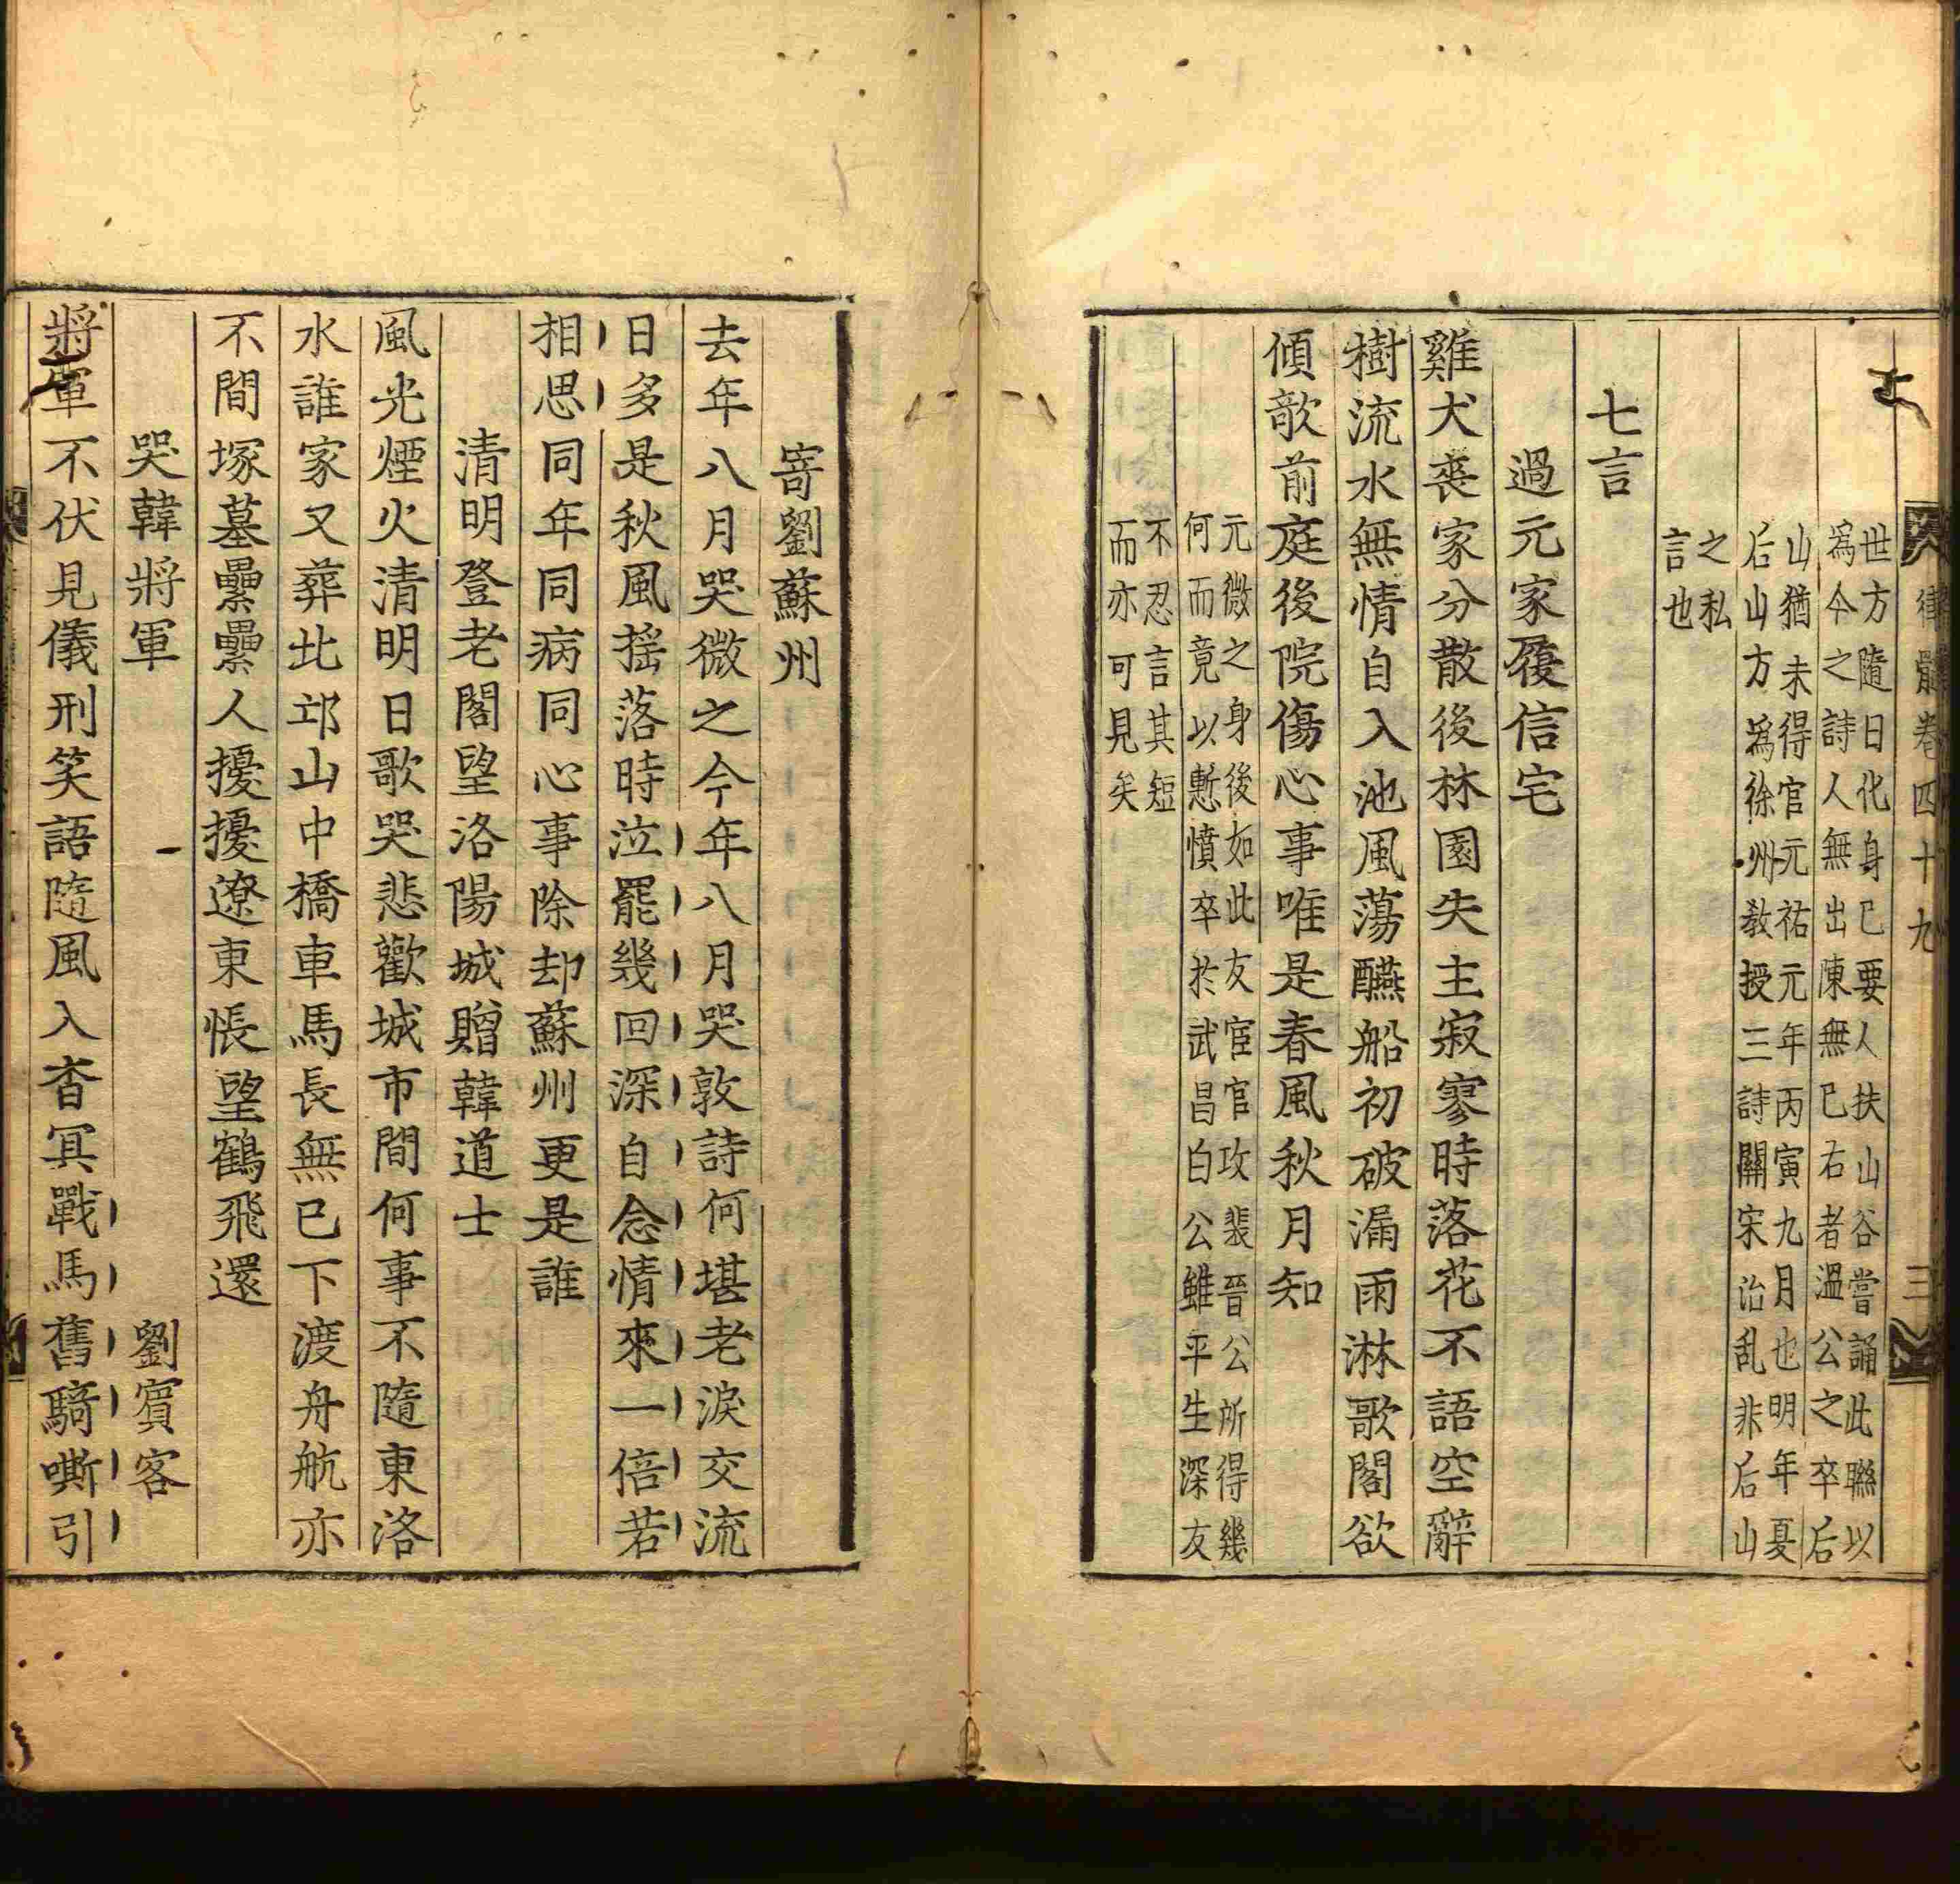 律髓卷四十九 三
世方隨日化身已要人扶山谷嘗誦此聯以
為今之詩人無出陳無已右者溫公之卒后
山猶未得官元祐元年丙寅九月也明年夏
后山方為徐州教授三詩關宋治乱非后山
之私
言也
七言
過元家履信宅
雞犬喪家分散後林園失主寂寥時落花不語空辭
樹流水無情自入池風蕩醼船初破漏雨淋歌閣欲
傾欹前庭後院傷心事唯是春風秋月知
元微之身後如此友宦官攻裴晉公所得幾
何而竟以慙憤卒於武昌白公雖平生深友
不忍言其短
而亦可見矣
寄劉蘇州
去年八月哭微之今年八月哭敦詩何堪老淚交流
日多是秋風搖落時泣罷幾回深自念情來一倍若
相思同年同病同心事除却蘇州更是誰
清明登老閣望洛陽城贈韓道士
風光煙火清明日歌哭悲歡城市間何事不隨東洛
水誰家又葬北邙山中橋車馬長無已下渡舟航亦
不間塚墓纍纍人擾擾遼東悵望鶴飛還
哭韓將軍 劉賓客
將軍不伏見儀刑笑語隨風入杳冥戰馬舊騎嘶引